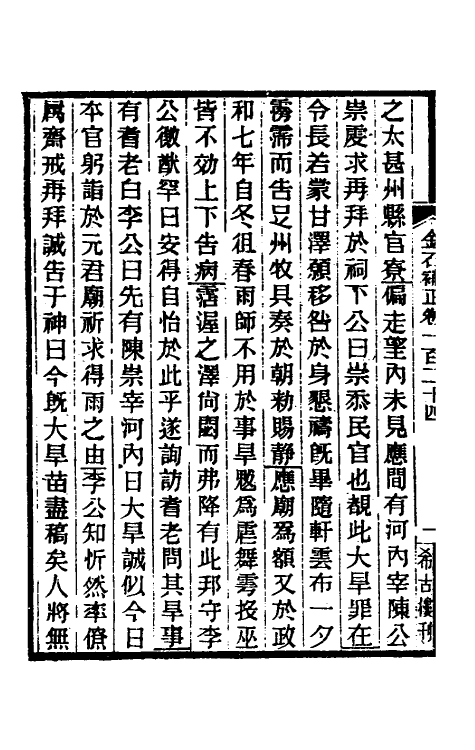 金石補正卷一百二十四
一
希古樓刊
之太甚州縣官寮偏走望內未見應間有河內宰陳公
崇虔求再拜於祠下公曰崇忝民官也覩此大旱罪在
令長若蒙甘澤願移咎於身懇禱旣畢隨軒雲布一夕
霶霈而告足州牧具奏於朝勑賜靜應廟爲額又於政
和七年自冬徂春雨師不用於事旱魃爲虐舞雩投巫
皆不効上下告病霑渥之澤尙閟而弗降有此邦守李
公徽猷罕曰安得自怡於此乎遂詢訪耆老問其旱事
有耆老白李公曰先有陳崇宰河內日大旱誠似今日
夲官躬詣於元君廟祈求得雨之由李公知忻然率僚
属齋戒再拜誠告于神曰今旣大旱苗盡稿矣人將無